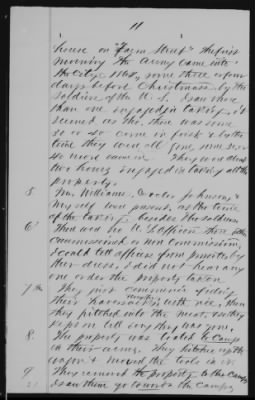 11
house on "Farm Street" the first
morning the Army came into
the city 1864, some three or four
days before Christmas by the
soldiers of the U.S. I saw more
than one engaged in taking it
seemed as tho, there was some
so or so come in first & by the
time they were all gone some
40 more came in. They were about
two hours engaged in taking all the
property.
5 Mr Williams, Doctor Johnson &
myself were present, at the time
of the taking besides the soldiers
6 There were no U.S. Officers there either
Commissioned or non Commission,
I could tell officers from privates by
their dress, I did not hear any
one order the property taken.
7th They just commenced filling
their haversacks with rice, then
they pitched into the meat, and they
kept on till every thing was gone.
8. The property was toted to Camp
in their arms. They hitched up the
wagon & moved the tools in it.
9 They removed the property to the Camp
I saw them go towards the Camps,